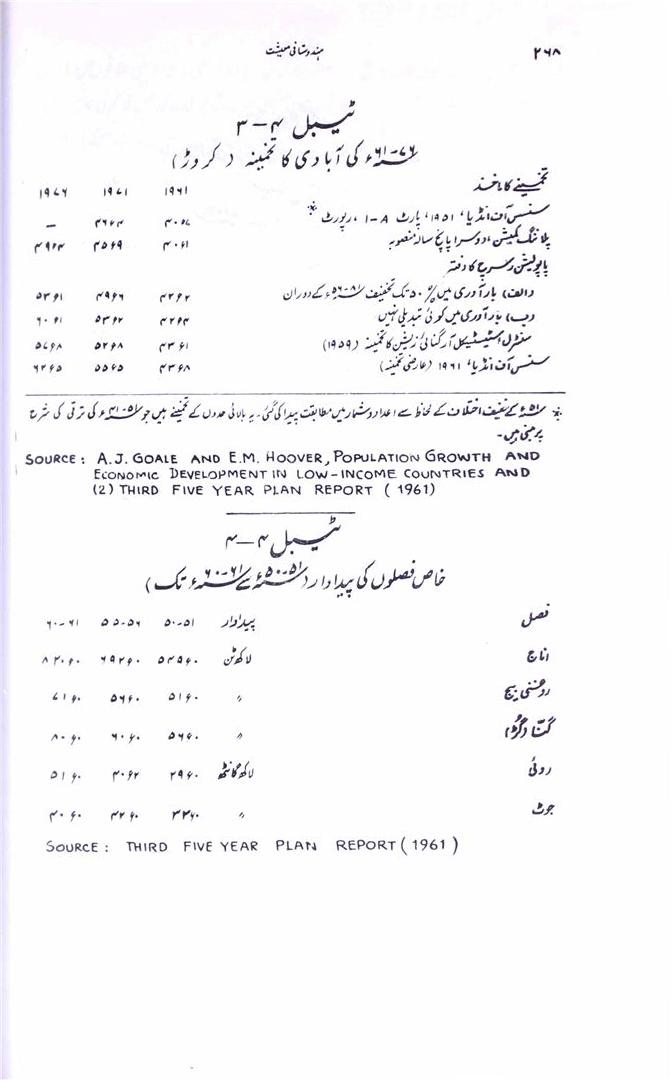 ۲۶۸ ہندوستانی معیشت
ٹیبل ۴-۳
۷۶-۶۱ء کی آبادی کا تخمینہ (کروڑ)
تخمینے کا ماخذ ۱۹۶۱ ۱۹۷۱ ۱۹۷۶
سنسس آف انڈیا، ۱۹۵۱، پارٹ I-A، رپورٹ* ۴۰ء۷ ۴۶ء۴ –
پلاننگ کمیشن، دوسرا پانچ سالہ منصوبہ ۴۰ء۱ ۴۵ء۹ ۴۹ء۴
پاپولیشن ریسرچ کا دفتر
(الف) بارآوری میں ۵۰٪ تک تخفیف ۸۱-۵۶ء کے دوران ۴۲ء۲ ۴۹ء۶ ۵۳ء۱
(ب) بارآوری میں کوئی تبدیلی نہیں ۴۲ء۴ ۵۳ء۲ ۶۰ء۱
سنٹرل اسٹیٹیکل آرگنائزیشن کا تخمینہ (۱۹۵۹) ۴۳ء۱ ۵۲ء۸ ۵۷ء۸
سنسس آف انڈیا، ۱۹۶۱ (عارضی تخمینہ) ۴۳ء۸ ۵۵ء۵ ۶۲ء۵
* ۵۱ء کے خفیف اختلاف کے لحاظ سے اعداد و شمار میں مطابقت پیدا کی گئی۔ یہ بالائی حدوں کے تخمینے ہیں جو ۵۱-۴۱ء کی ترقی کی شرح
پر مبنی ہیں۔
SOURCE: A.J. GOALE AND E.M. HOOVER, POPULATION GROWTH AND
ECONOMIC DEVELOPMENT IN LOW-INCOME COUNTRIES AND
(2) THIRD FIVE YEAR PLAN REPORT (1961)
ٹیبل ۴-۴
خاص فصلوں کی پیداوار (۵۱-۵۰ء سے ۶۱-۶۰ء تک)
فصل پیداوار ۵۱-۵۰ ۵۶-۵۵ ۶۱-۶۰
اناج لاکھ ٹن ۵۲۵ء۰ ۶۹۲ء۰ ۸۲۰ء۰
روغنی بیج " ۵۱ء۰ ۵۶ء۰ ۷۱ء۰
گنّا (گڑ) " ۵۶ء۰ ۶۰ء۰ ۸۰ء۰
روئی لاکھ گانٹھ ۲۹ء۰ ۴۰ء۲ ۵۱ء۰
جوٹ " ۳۳ء۰ ۴۲ء۰ ۴۰ء۰
SOURCE: THIRD FIVE YEAR PLAN REPORT (1961)